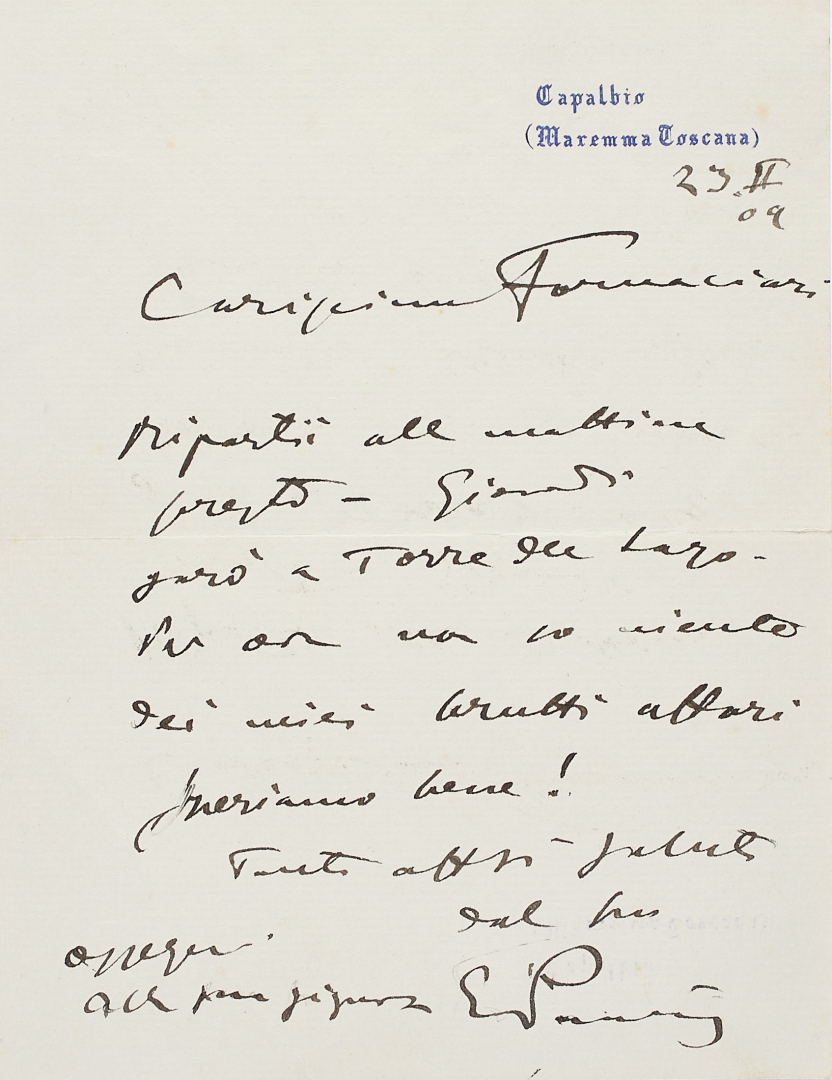 Capalbio
(Maremma Toscana)
23.II
09
Carissimo Fornaciari
Ripartii alla mattina
presto — Giovedì
sarò a Torre del Lago.
Per ora non so niente
dei miei brutti affari
speriamo bene!
Tanti affsi saluti
dal suo
G. Puccini
ossequi
alla sua signora